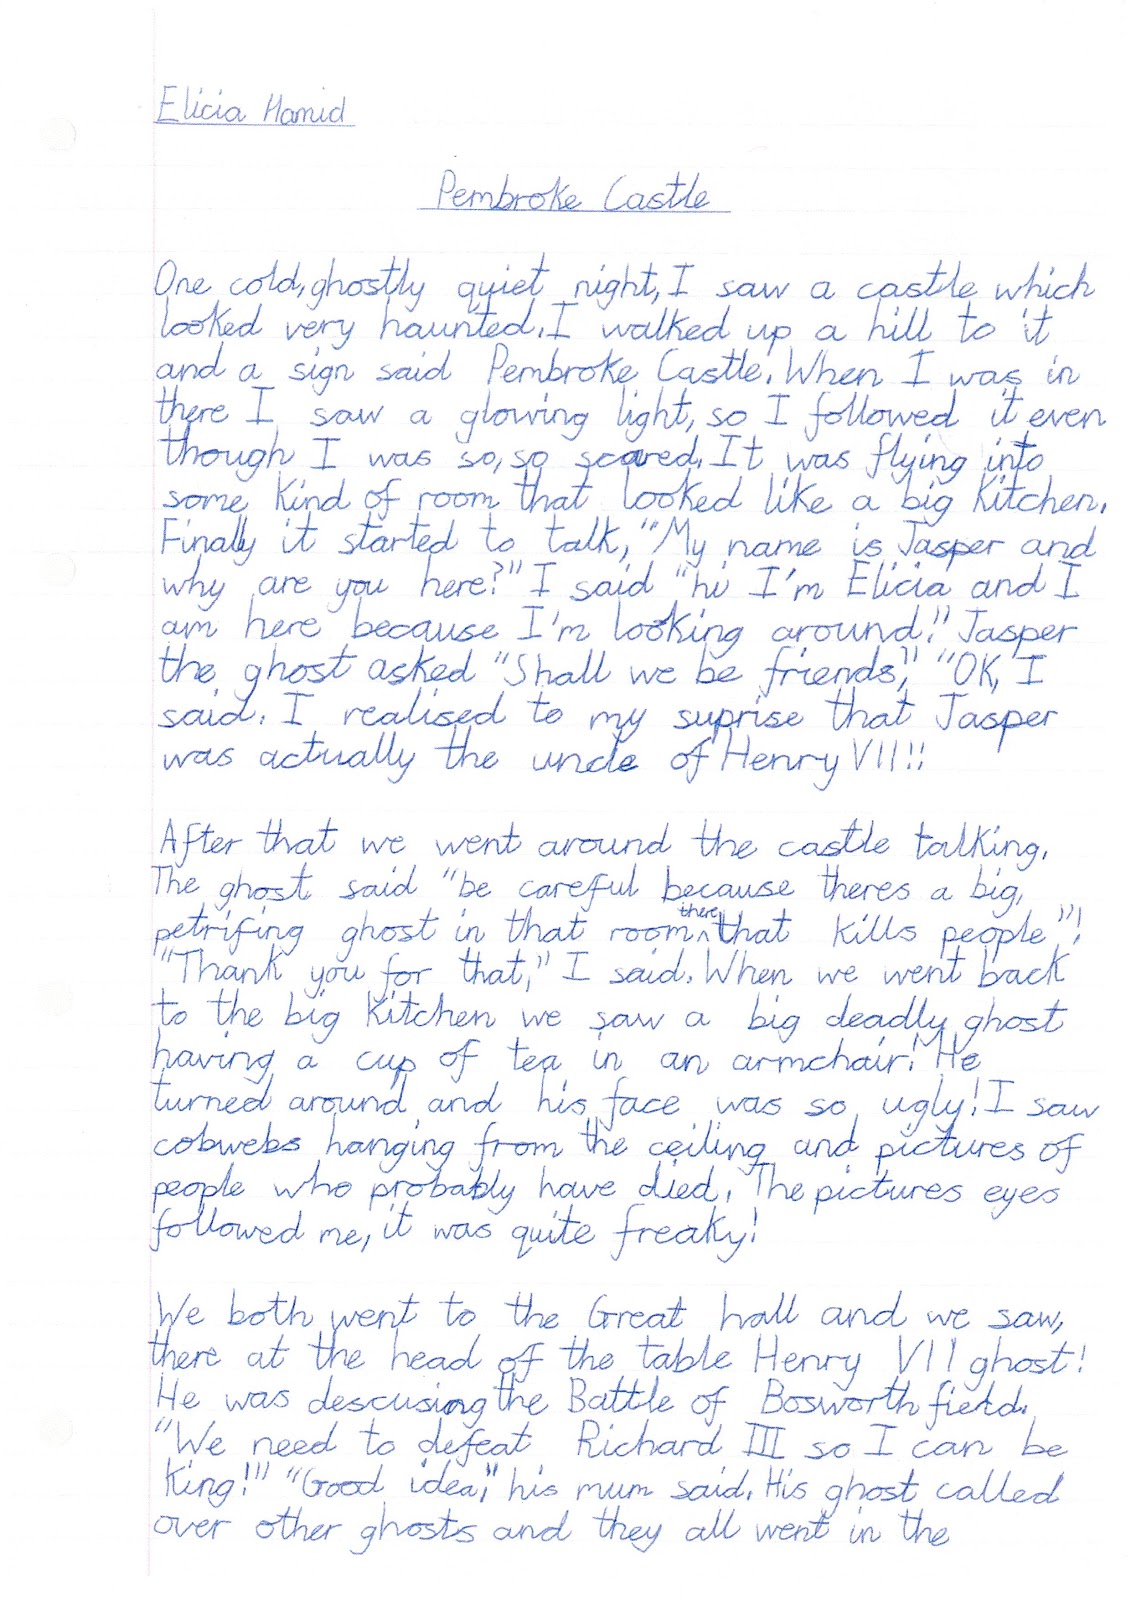 Elicia Hamid
Pembroke Castle
One cold, ghostly quiet night, I saw a castle which
looked very haunted. I walked up a hill to it
and a sign said Pembroke Castle. When I was in
there I saw a glowing light, so I followed it even
though I was so, so scared. It was flying into
some kind of room that looked like a big kitchen.
Finally it started to talk, "My name is Jasper and
why are you here?" I said "hi I'm Elicia and I
am here because I'm looking around." Jasper
the ghost asked "Shall we be friends?" "OK, I
said. I realised to my suprise that Jasper
was actually the uncle of Henry VII!!
After that we went around the castle talking.
The ghost said "be careful because theres a big,
petrifing ghost in that room there that kills people"!
"Thank you for that," I said. When we went back
to the big kitchen we saw a big deadly ghost
having a cup of tea in an armchair! He
turned around and his face was so ugly! I saw
cobwebs hanging from the ceiling and pictures of
people who probably have died. The pictures eyes
followed me, it was quite freaky!
We both went to the Great hall and we saw,
there at the head of the table Henry VII ghost!
He was descusing the Battle of Bosworth field.
"We need to defeat Richard III so I can be
King!" "Good idea," his mum said. His ghost called
over other ghosts and they all went in the